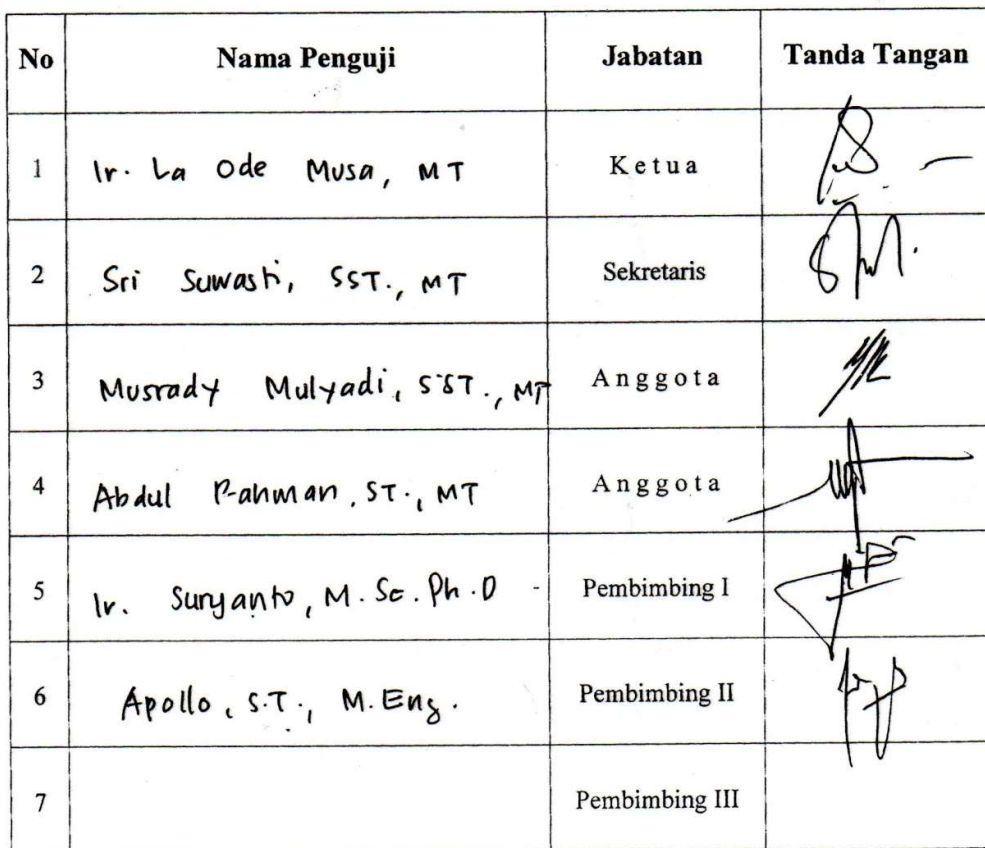 No Nama Penguji Jabatan Tanda Tangan
1 Ir. La Ode Musa, MT Ketua
2 Sri Suwasti, SST., MT Sekretaris
3 Musrady Mulyadi, SST., MT Anggota
4 Abdul Rahman, ST., MT Anggota
5 Ir. Suryanto, M.Sc.Ph.D Pembimbing I
6 Apollo, S.T., M.Eng. Pembimbing II
7 Pembimbing III